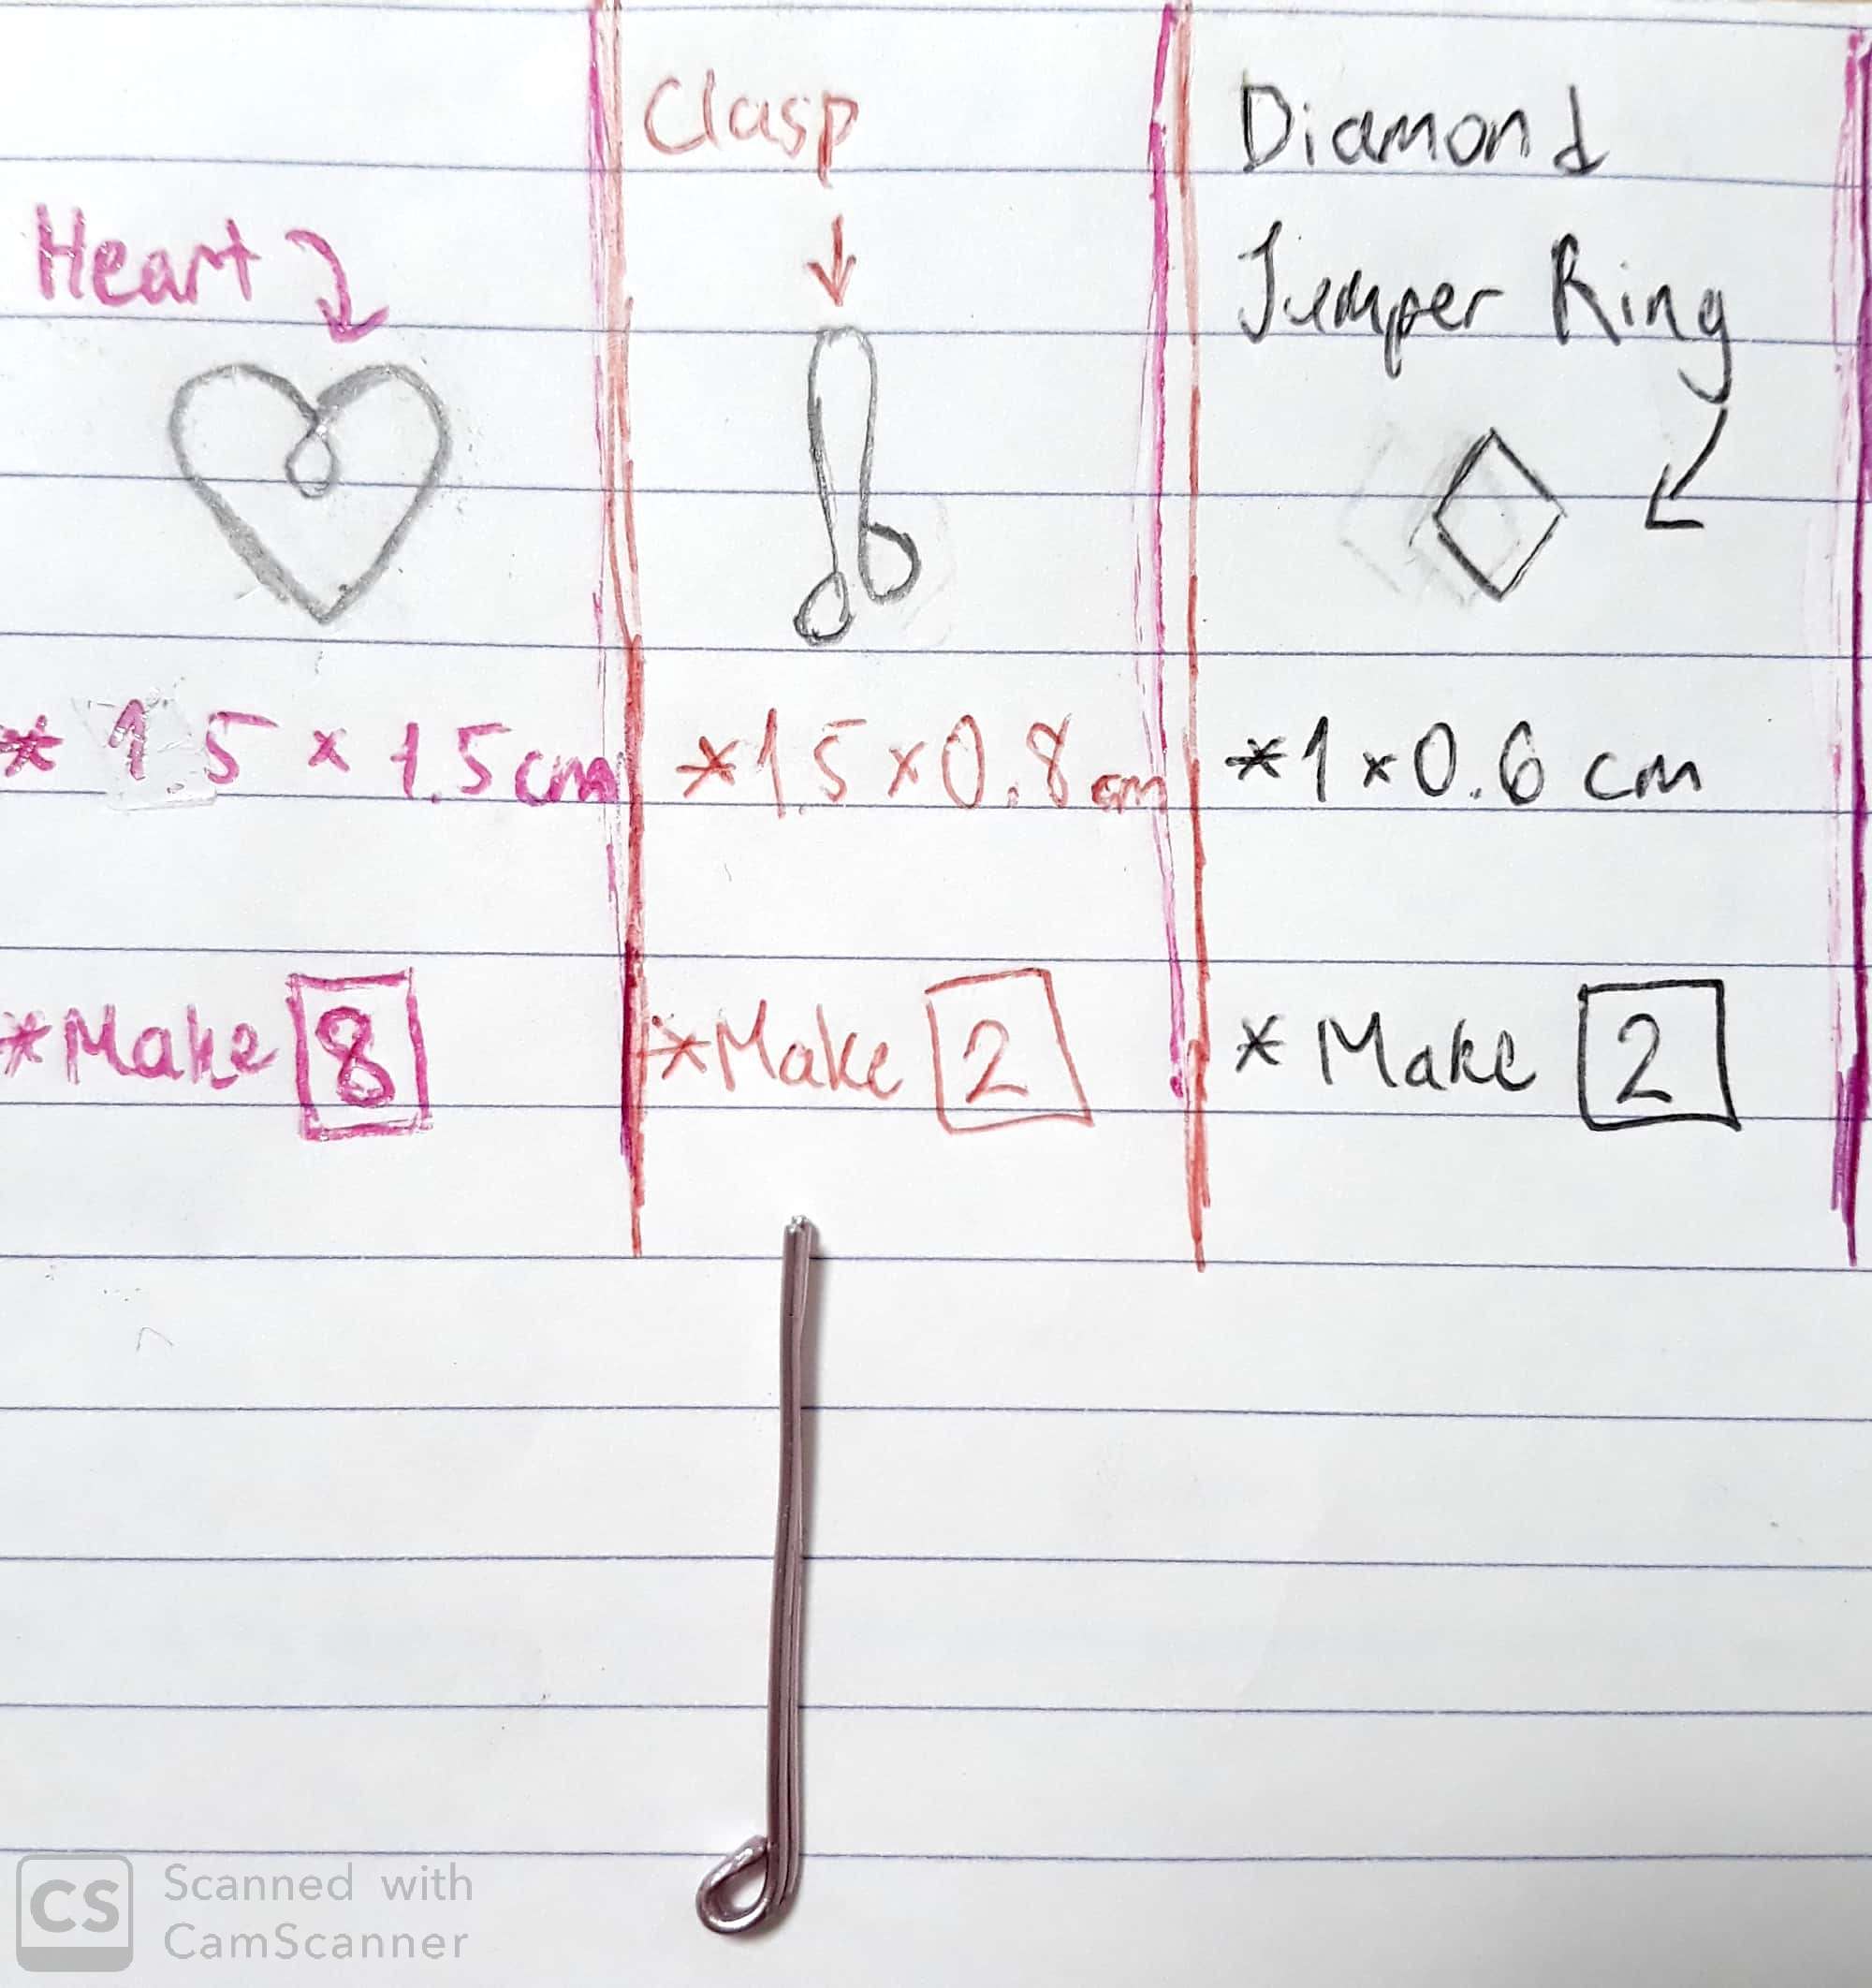 Heart
* 1 5 × 1.5cm
*Make 8
Clasp
*1.5 × 0.8 cm
*Make 2
Diamond
Jumper Ring
*1 × 0.6 cm
* Make 2
CS Scanned with
CamScanner